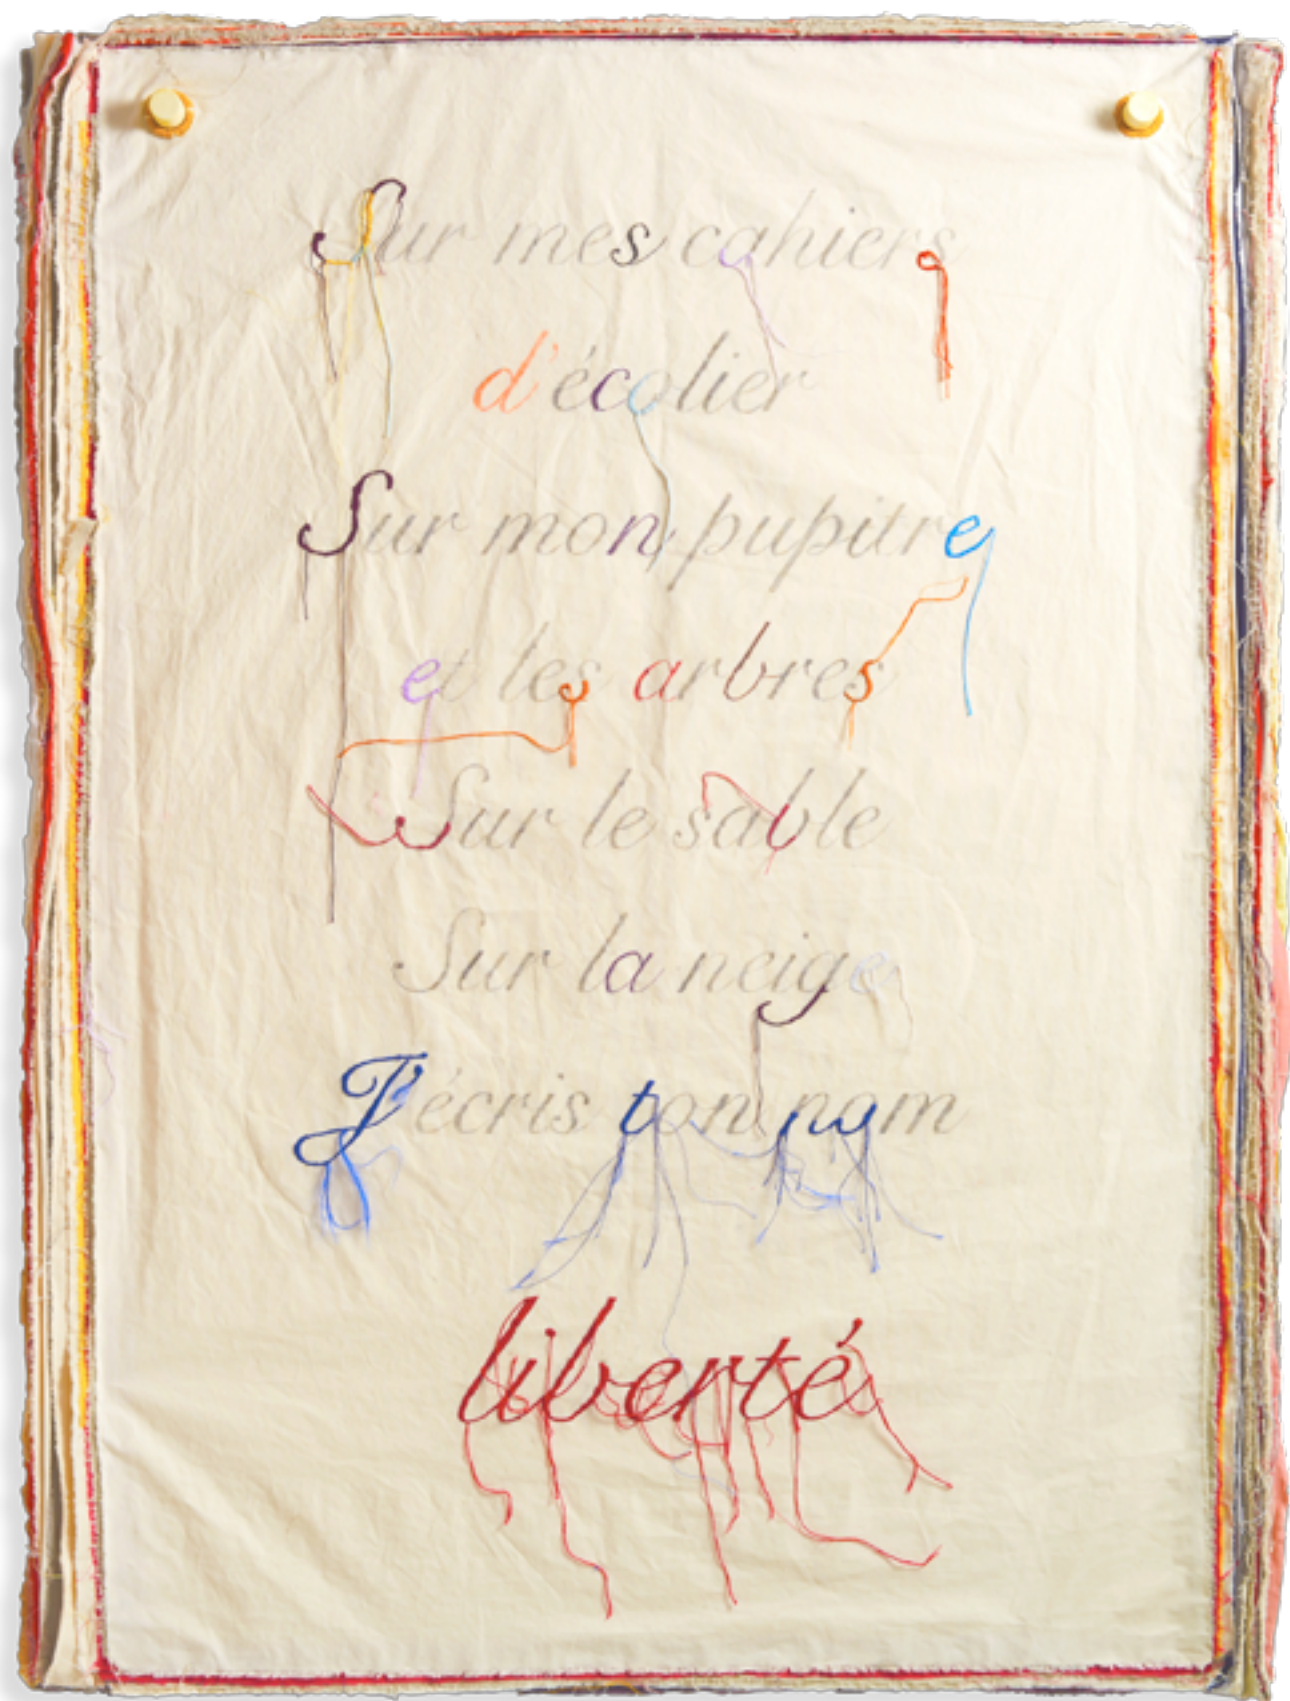 Sur mes cahiers
d'écolier
Sur mon pupitre
et les arbres
Sur le sable
Sur la neige
J'écris ton nom
liberté